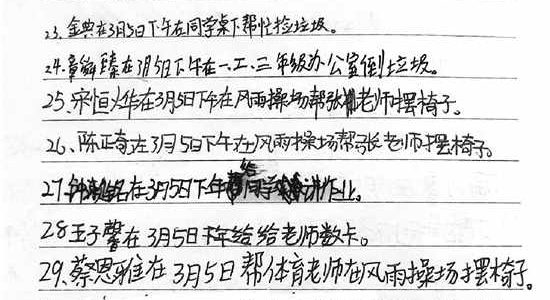 23.金典在3月5日下午在同学桌下帮忙捡垃圾。
24.章舜臻在3月5日下午在一.二.三年级办公室倒垃圾。
25、宋恒烨在3月5日下午在风雨操场帮张老师摆椅子。
26、陈正奇在3月5日下午在风雨操场帮张老师摆椅子。
27.钟铭在3月5日下午给同学讲作业。
28王子馨在3月5日下午给给老师数卡。
29.蔡恩雅在3月5日帮体育老师在风雨操场摆椅子。